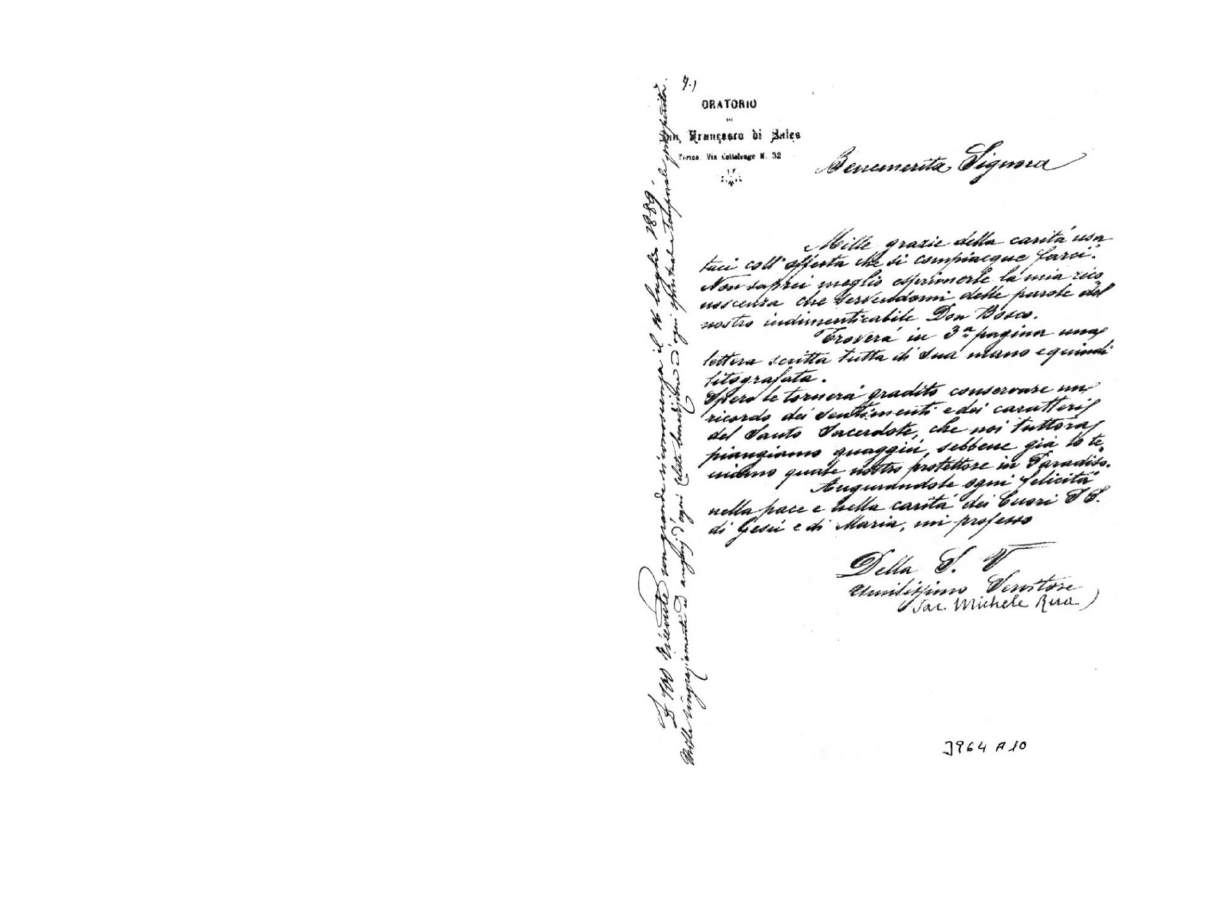 7.)
ORATORIO
DI
San Francesco di Sales
Torino, Via Cottolengo N. 32
Benemerita Signora
Mille grazie della carità usa
taci coll'offerta che si compiacque farci.
Non saprei meglio esprimerle la mia rico
noscenza che servendomi delle parole del
nostro indimenticabile Don Bosco.
Troverà in 3ª pagina una
lettera scritta tutta di sua mano e quindi
litografata.
Spero le tornerà gradito conservare un
ricordo dei sentimenti e dei caratteri
del Santo Sacerdote, che noi tuttora
piangiamo quaggiù, sebbene già lo te
niamo quale nostro protettore in Paradiso.
Augurandole ogni felicità
nella pace e nella carità dei Cuori S S.
di Gesù e di Maria, mi professo
Della S. V
Umilissimo Servitore
Sac. Michele Rua
£ 100 ricevute con grande riconoscenza il 16 luglio 1889.
Mille ringraziamenti ed augurj d'ogni celeste benedizione, d'ogni spirituale e temporale prosperità.
3964 A10